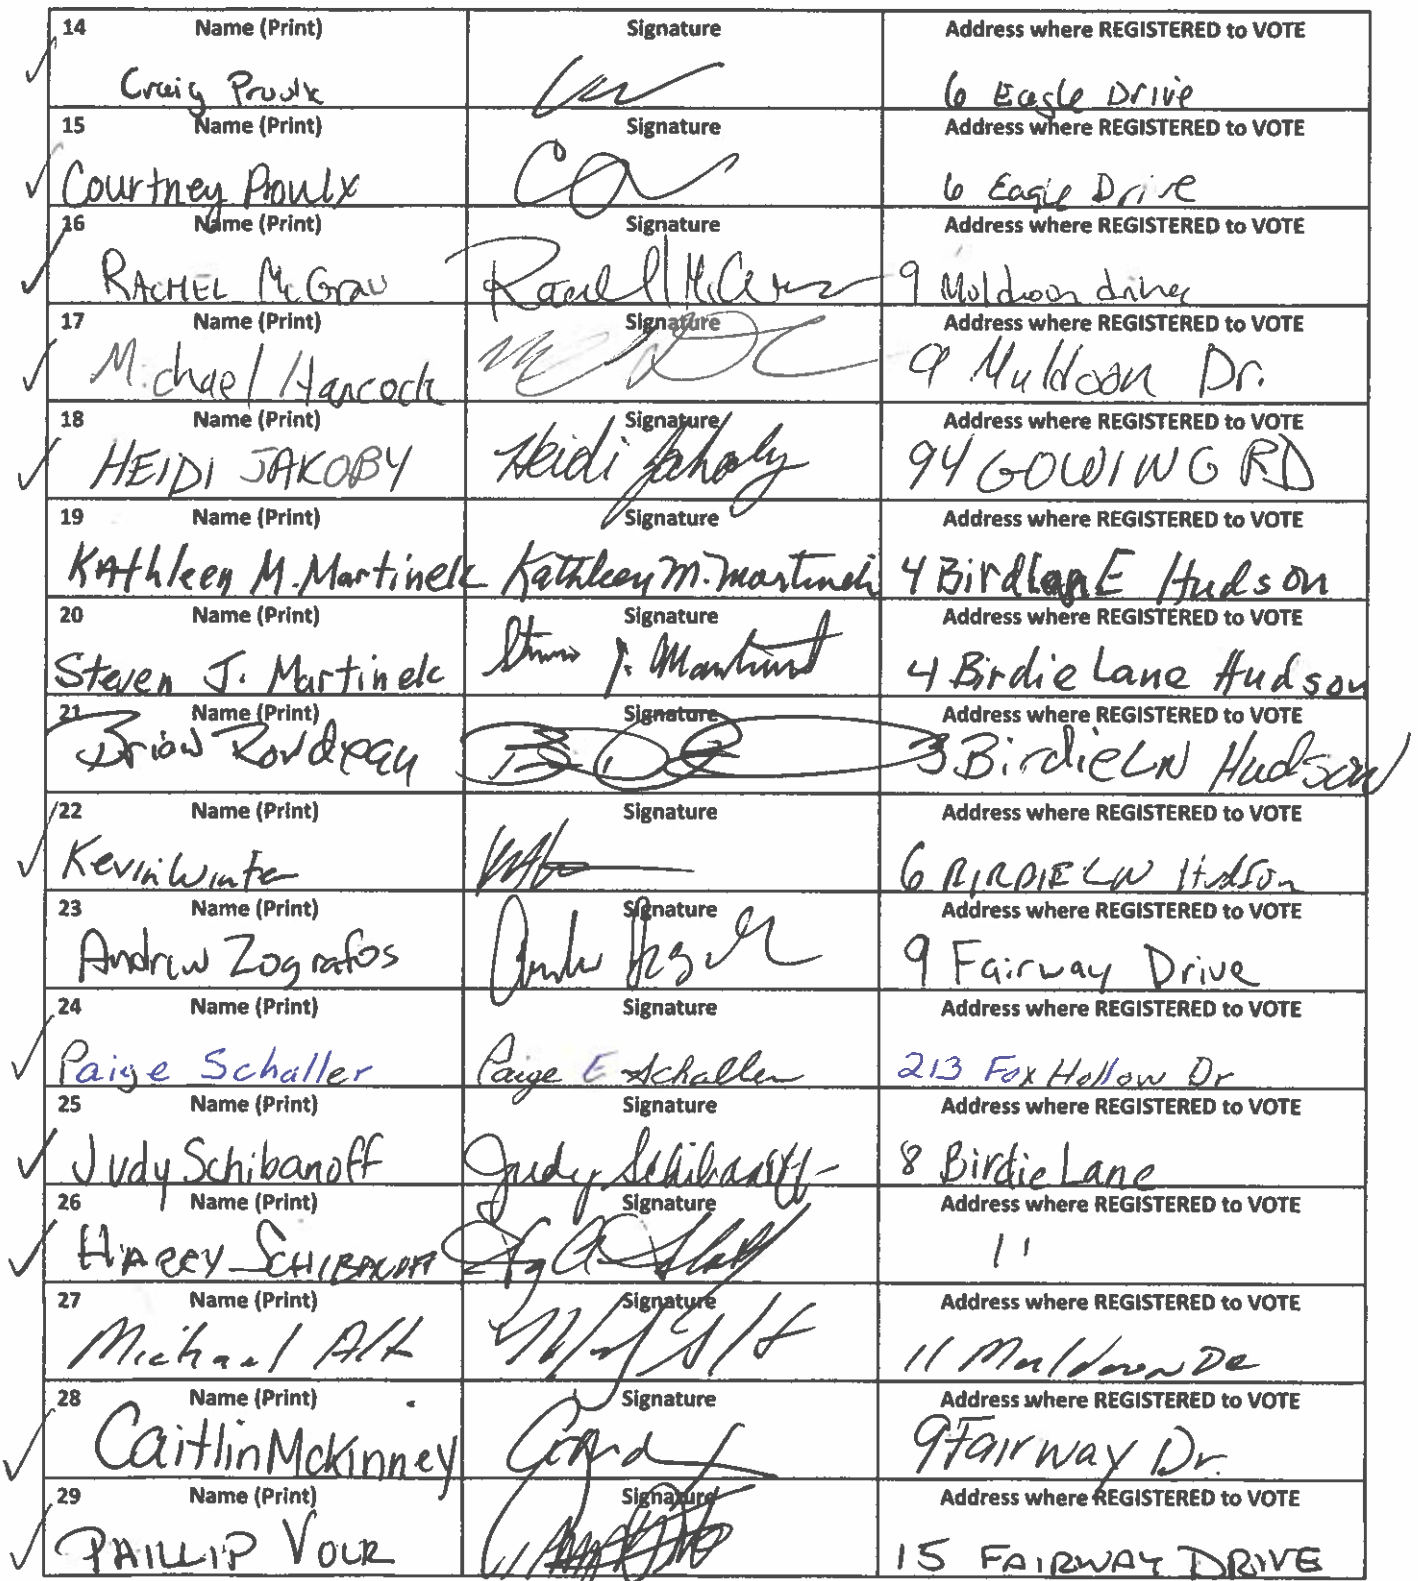 14 Name (Print) Signature Address where REGISTERED to VOTE
Craig Proulx 6 Eagle Drive
15 Name (Print) Signature Address where REGISTERED to VOTE
Courtney Proulx 6 Eagle Drive
16 Name (Print) Signature Address where REGISTERED to VOTE
RACHEL McGraw 9 Muldoon drive
17 Name (Print) Signature Address where REGISTERED to VOTE
Michael Hancock 9 Muldoon Dr.
18 Name (Print) Signature Address where REGISTERED to VOTE
HEIDI JAKOBY Heidi Jakoby 94 GOWING RD
19 Name (Print) Signature Address where REGISTERED to VOTE
KAthleen M. Martinek Kathleen M. Martinek 4 BirdLanE Hudson
20 Name (Print) Signature Address where REGISTERED to VOTE
Steven J. Martinek J. 4 Birdie Lane Hudson
21 Name (Print) Signature Address where REGISTERED to VOTE
Brian Rondeau 3 Birdie LN Hudson
22 Name (Print) Signature Address where REGISTERED to VOTE
Kevin Winter 6 BIRDIE LN Hudson
23 Name (Print) Signature Address where REGISTERED to VOTE
Andrew Zografos 9 Fairway Drive
24 Name (Print) Signature Address where REGISTERED to VOTE
Paige Schaller Paige E Schaller 213 Fox Hollow Dr
25 Name (Print) Signature Address where REGISTERED to VOTE
Judy Schibanoff Judy Schibanoff 8 Birdie Lane
26 Name (Print) Signature Address where REGISTERED to VOTE
HARRY SCHIBANOFF 11
27 Name (Print) Signature Address where REGISTERED to VOTE
Michael Alt 11 Muldoon Dr
28 Name (Print) Signature Address where REGISTERED to VOTE
Caitlin McKinney 9 Fairway Dr.
29 Name (Print) Signature Address where REGISTERED to VOTE
PHILLIP VOLK 15 FAIRWAY DRIVE